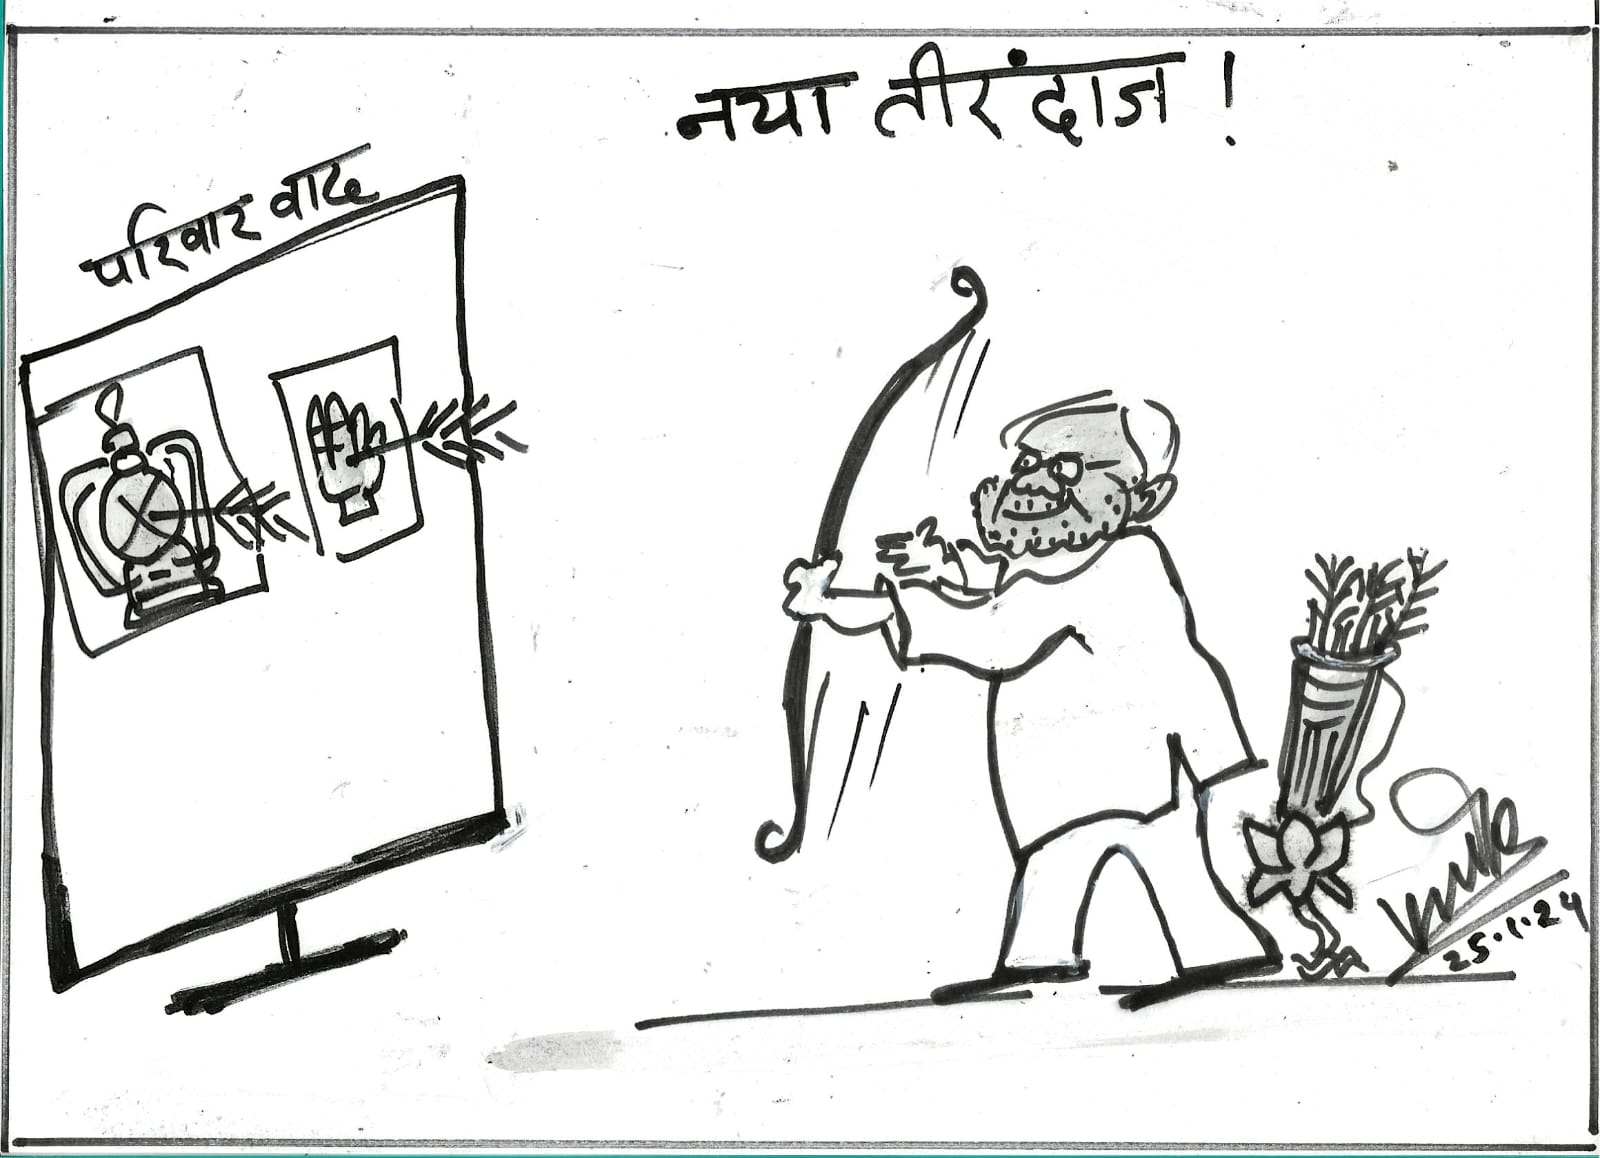 नया तीरंदाज !
परिवार वाद
25.1.24